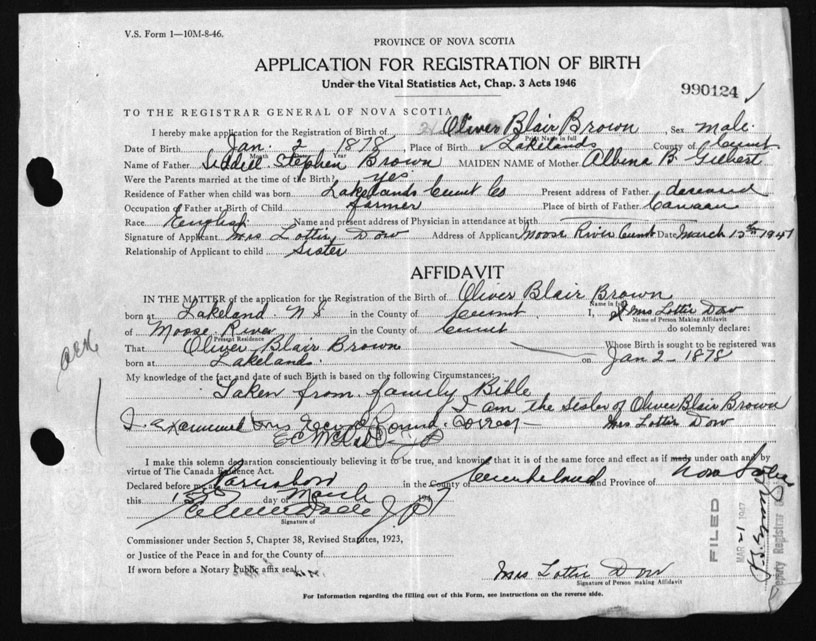 V.S. Form 1—10M-8-46.
PROVINCE OF NOVA SCOTIA
APPLICATION FOR REGISTRATION OF BIRTH
Under the Vital Statistics Act, Chap. 3 Acts 1946
990124
TO THE REGISTRAR GENERAL OF NOVA SCOTIA
I hereby make application for the Registration of Birth of Oliver Blair Brown Sex male
Print Name in full
Date of Birth Jan. 2 1878 Place of Birth Lakelands County of Cumt
Month Year
Name of Father Stephen Brown MAIDEN NAME of Mother Albena B. Gilbert
Were the Parents married at the time of the Birth? yes
Residence of Father when child was born Lakelands Cumt Co Present address of Father deceased
Occupation of Father at Birth of Child farmer Place of birth of Father Canaan
Race English Name and present address of Physician in attendance at birth
Signature of Applicant Mrs Lottie Dow Address of Applicant Moose River Cumb Date March 15th 1947
Relationship of Applicant to child Sister
AFFIDAVIT
IN THE MATTER of the application for the Registration of the Birth of Oliver Blair Brown
Name in full
born at Lakeland N S in the County of Cumt, I, Mrs Lottie Dow
Name of Person Making Affidavit
of Moose River in the County of Cumt do solemnly declare:
Present Residence
That Oliver Blair Brown Whose Birth is sought to be registered was
born at Lakeland. on Jan 2 - 1878
My knowledge of the fact and date of such Birth is based on the following Circumstances:
Taken from family Bible
I am the Sister of Oliver Blair Brown
I Examined this record found correct Mrs Lottie Dow
I make this solemn declaration conscientiously believing it to be true, and knowing that it is of the same force and effect as if made under oath and by
virtue of The Canada Evidence Act.
Declared before me at Parrsboro in the County of Cumberland and Province of Nova Scotia
this 15 day of March 1947
Signature of
Commissioner under Section 5, Chapter 38, Revised Statutes, 1923,
or Justice of the Peace in and for the County of
If sworn before a Notary Public affix seal
Mrs Lottie Dow
Signature of Person making Affidavit
For Information regarding the filling out of this Form, see instructions on the reverse side.
FILED
MAR 21 1947
Deputy Registrar